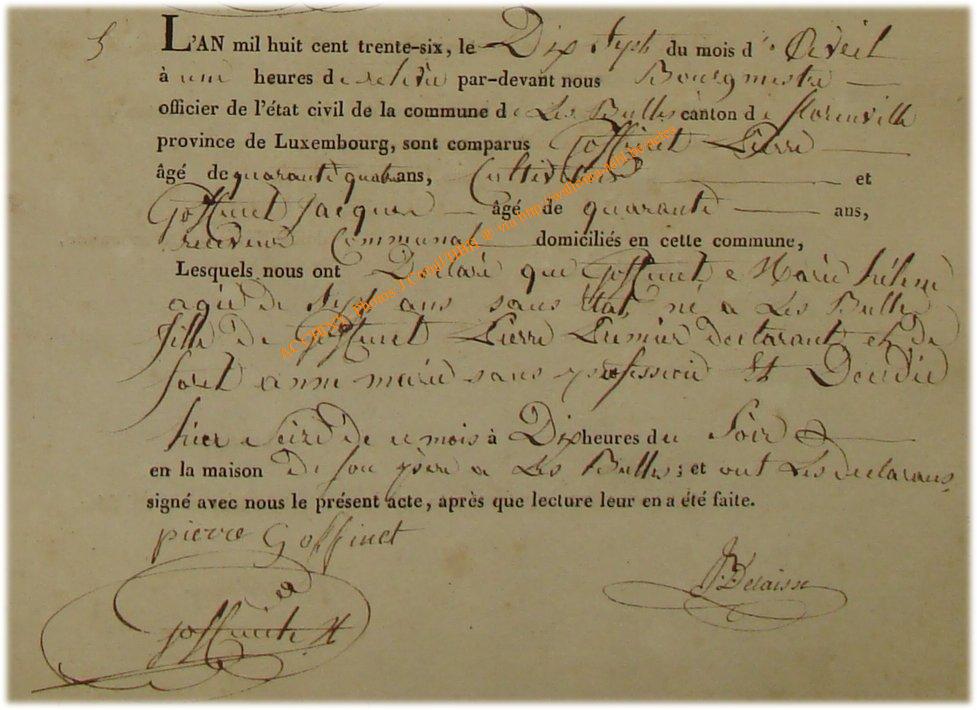 5
L'AN mil huit cent trente-six, le Dix Sept du mois d'Avril
à une heures de relevée par-devant nous Bourgmestre
officier de l'état civil de la commune de Les Bulles canton de florenville
province de Luxembourg, sont comparus Goffinet Pierre
âgé de quarante quatre ans, Cultivateur et
Goffinet Jacques âgé de quarante ans,
receveur Communal domiciliés en cette commune,
Lesquels nous ont Déclaré que Goffinet Marie héléne
agée de Sept ans sans état né a Les Bulles
fille de Goffinet Pierre Premier declarant et de
foret anne marie sans profession Est Decedée
hier Seize de ce mois à Dix heures du Soir
en la maison De Son père a Les Bulles; et ont Les declarans
signé avec nous le présent acte, après que lecture leur en a été faite.
pierre Goffinet
JB Delaisse
Goffinet